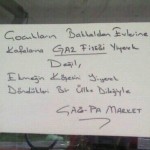 Çocukların Bakkaldan Evlerine
Kafalarına GAZ Fişeği Yiyerek
Değil,
Ekmeğin Köşesini Yiyerek
Döndükleri Bir Ülke Dileğiyle
ÇAĞ-PA MARKET